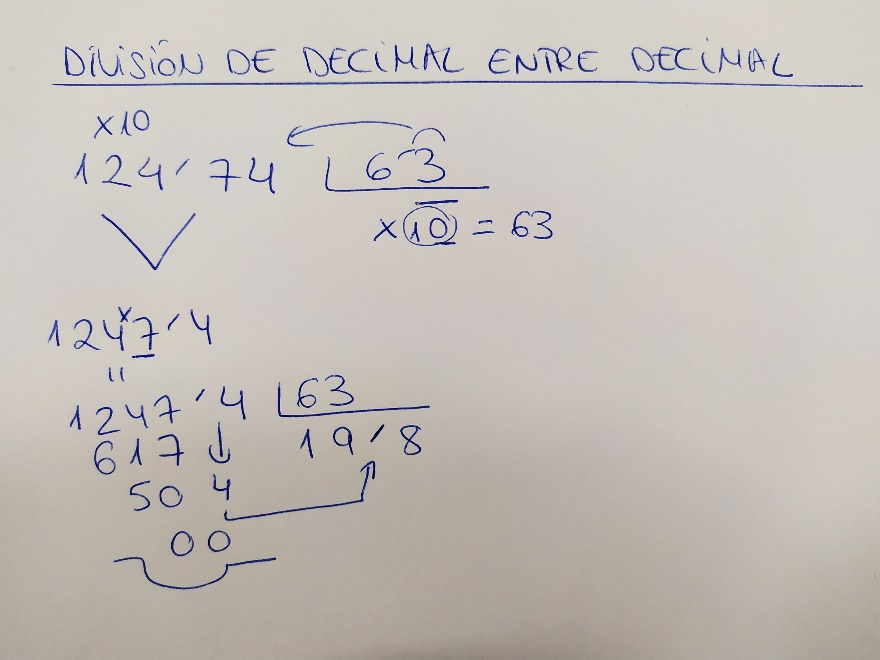 DIVISIÓN DE DECIMAL ENTRE DECIMAL
x10
124'74 6'3
x10 = 63
1247'4
"
1247'4 63
617 19'8
504
00